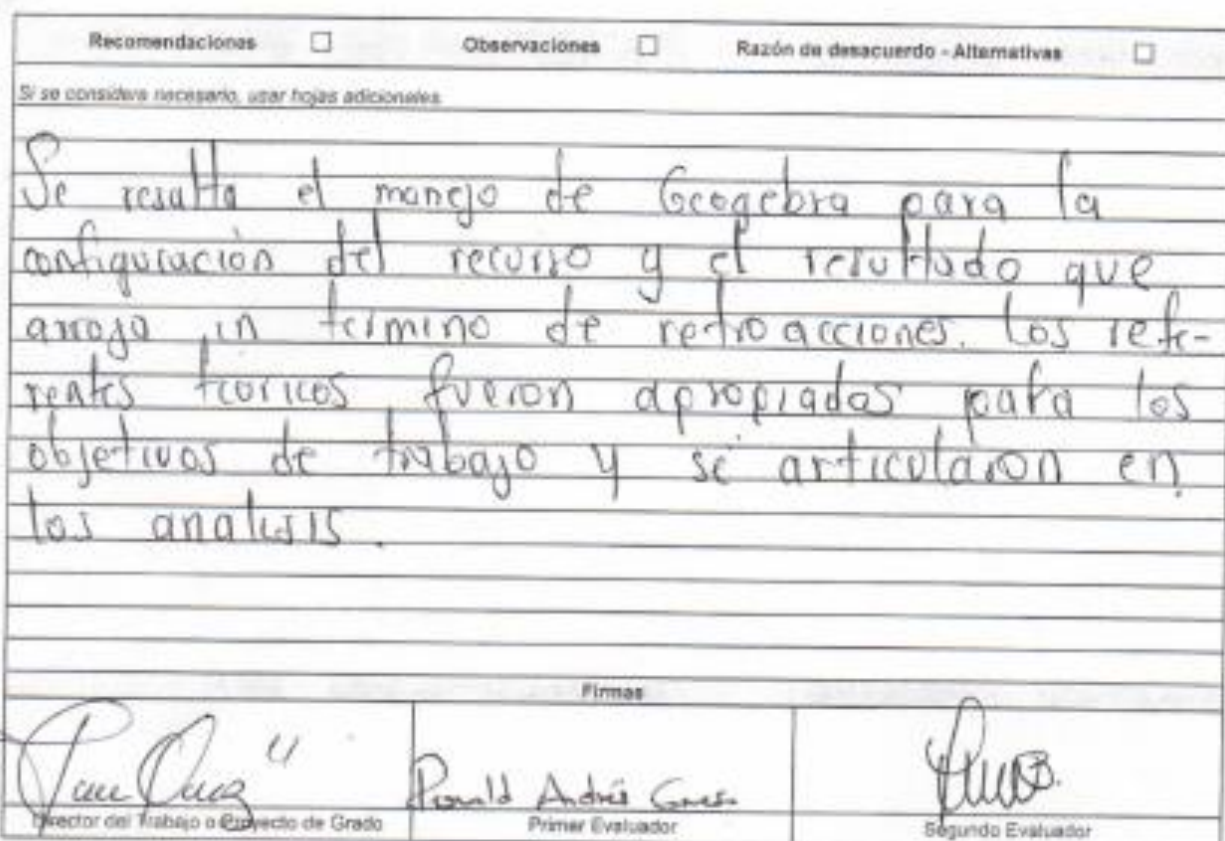 Recomendaciones ☐ Observaciones ☐ Razón de desacuerdo - Alternativas ☐
Si se considera necesario, usar hojas adicionales
Se resalta el manejo de Geogebra para la
configuración del recurso y el resultado que
arrojo en termino de retroacciones. Los refe-
rentes teoricos fueron apropiados para los
objetivos de trabajo y se articularon en
los analisis.
Firmas
Ronald Andrés
Director del Trabajo o Proyecto de Grado Primer Evaluador Segundo Evaluador